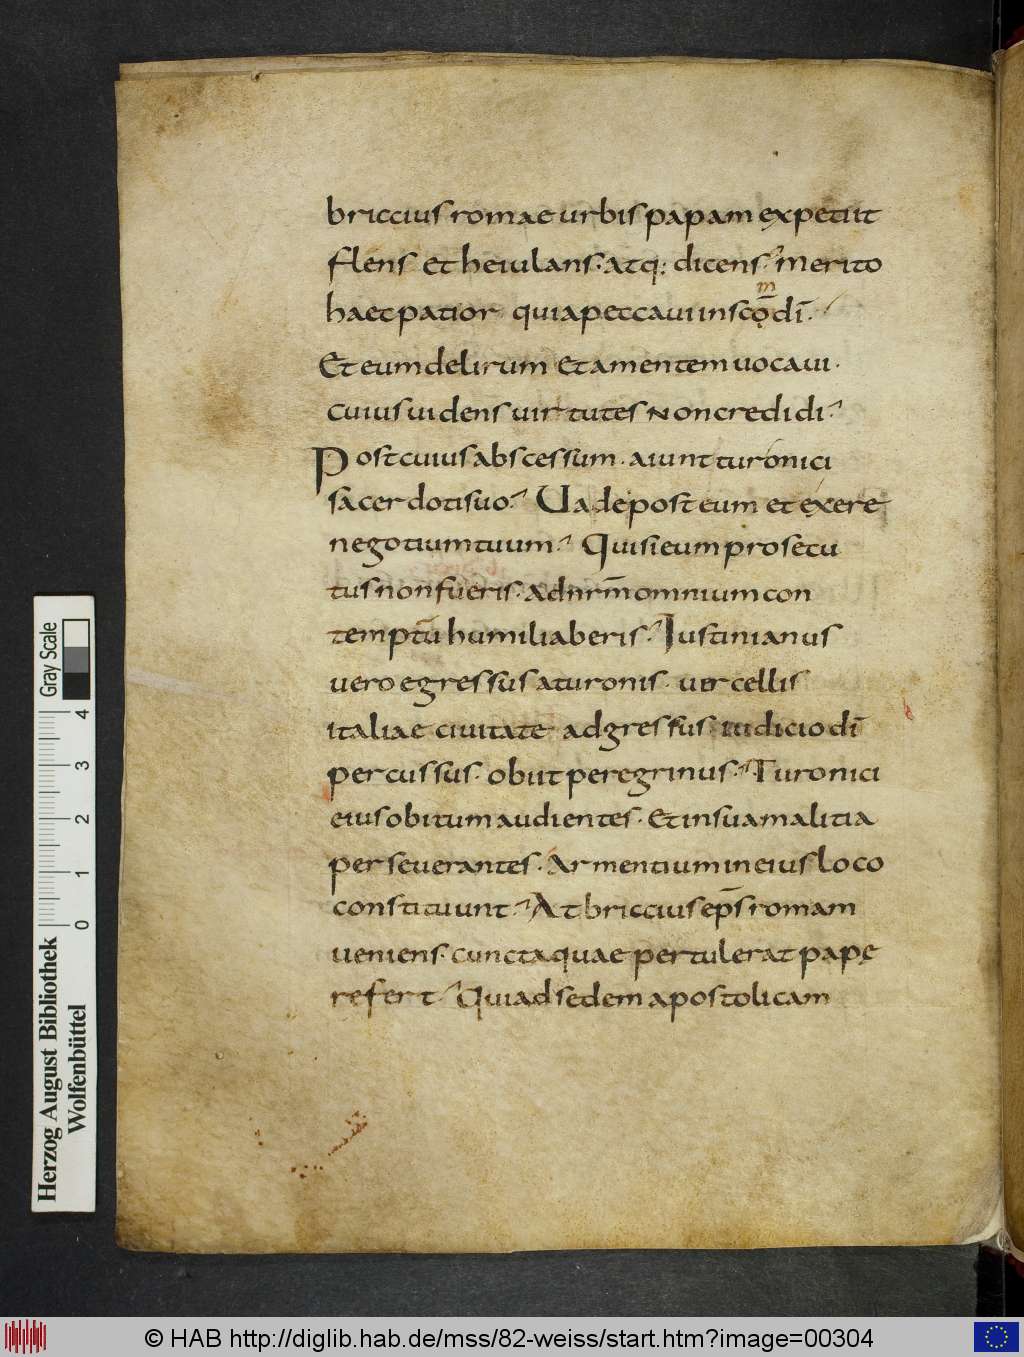 briccius romae urbis papam expetiit
flens et heiulans· atq; dicens· merito
haec patior quia peccaui in scō dī·
m
Et eum delirum et amentem uocaui·
cuius uidens uirtutes non credidi·
Post cuius abscessum· aiunt turonici
sacerdoti suo· Uade post eum et exere
negotium tuum· Qui si eum prosecu
tus non fueris· ad nrm̄ omnium con
temptū humiliaberis· Iustinianus
uero egressus a turonis· uercellis
italiae ciuitate adgressus· iudicio dī
percussus· obiit peregrinus· Turonici
eius obitum audientes· et in sua malitia
perseuerantes· Armentium in eius loco
constituunt· At briccius ep̄s romam
ueniens· cuncta quae pertulerat papę
refert· Qui ad sedem apostolicam
Herzog August Bibliothek
Wolfenbüttel
Gray Scale
0 1 2 3 4
© HAB http://diglib.hab.de/mss/82-weiss/start.htm?image=00304